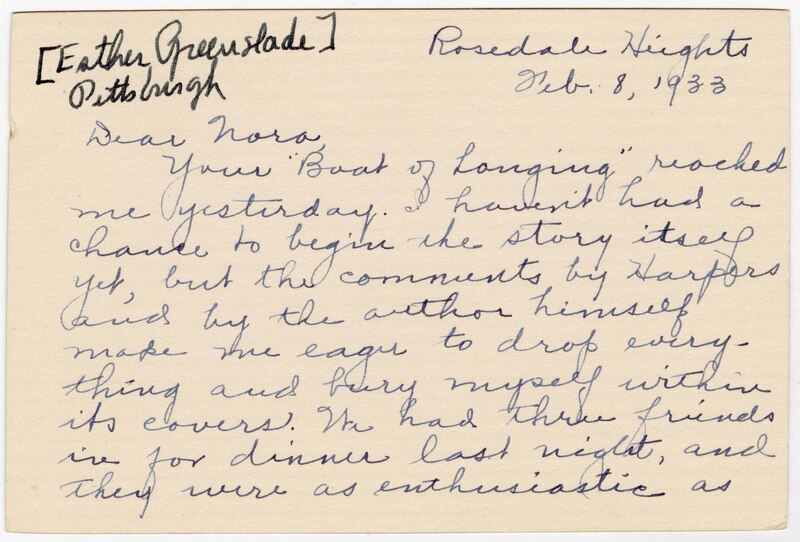 [Esther Greenslade]
Pittsburgh
Rosedale Heights
Feb. 8, 1933
Dear Nora,
Your "Boat of Longing" reached
me yesterday. I haven't had a
chance to begin the story itself
yet, but the comments by Harpers
and by the author himself
make me eager to drop every-
thing and bury myself within
its covers. We had three friends
in for dinner last night, and
they were as enthusiastic as